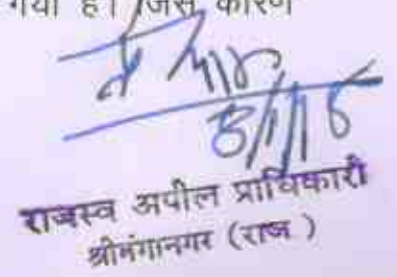 गया है। जिस कारण
राजस्व अपील प्राधिकारी
श्रीगंगानगर (राज)